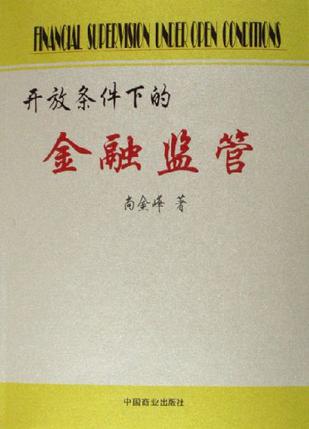 FINANCIAL SUPERVISION UNDER OPEN CONDITIONS
开放条件下的
金融监管
尚金峰 著
中国商业出版社